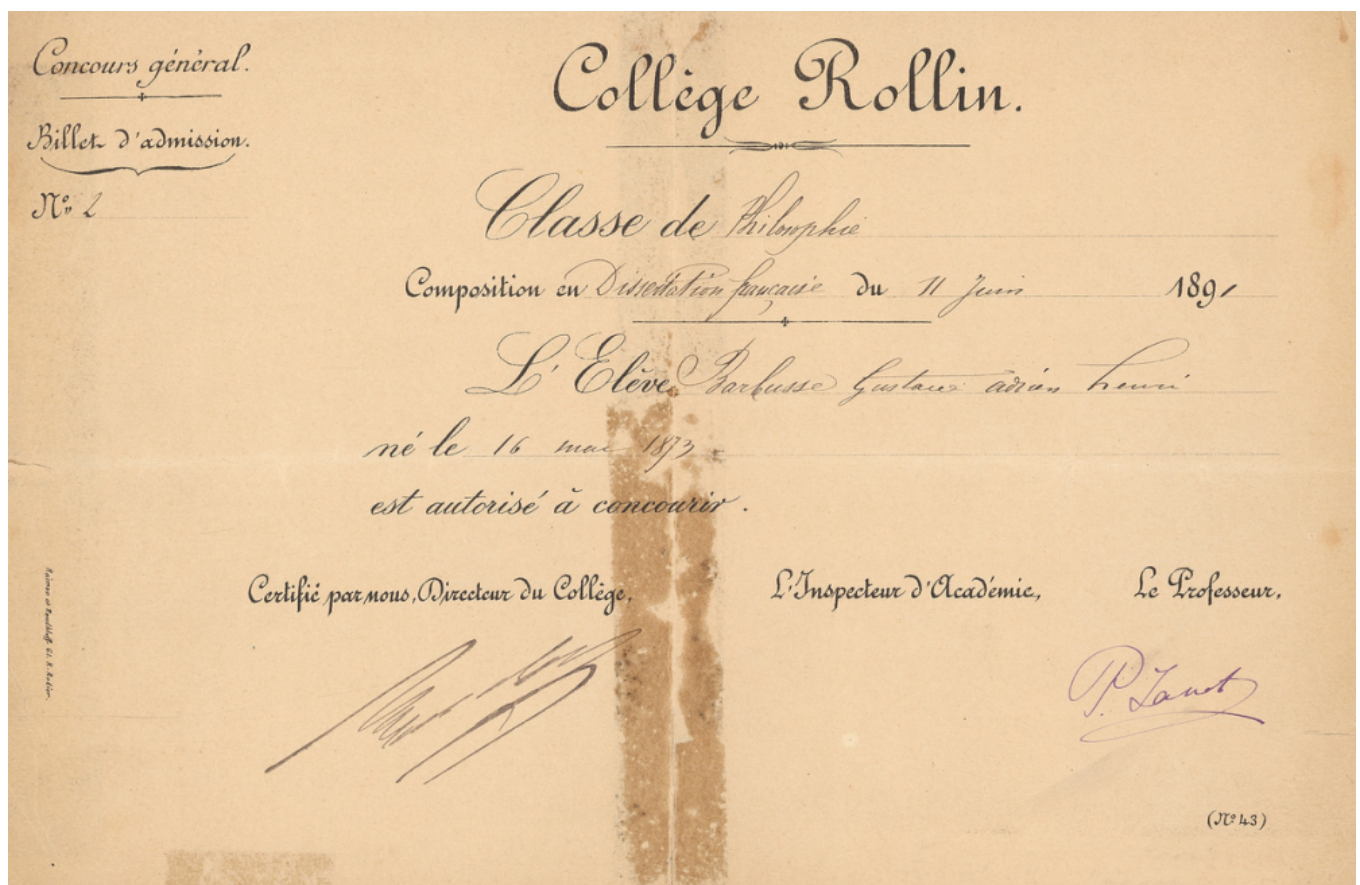 Concours général.
Billet d'admission.
Nº 2
Collège Rollin.
Classe de Philosophie
Composition en Dissertation française du 11 Juin 1891
L'Elève Barbusse Gustave adrien henri
né le 16 mai 1873
est autorisé à concourir.
Certifié par nous, Directeur du Collège,
L'Inspecteur d'Académie,
Le Professeur,
P. Janet
(Nº 43)